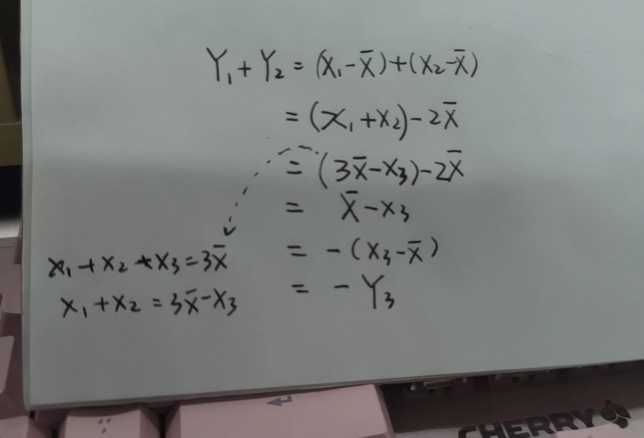 Y₁ + Y₂ = (x₁ - x̄) + (x₂ - x̄)
= (x₁ + x₂) - 2x̄
= (3x̄ - x₃) - 2x̄
= x̄ - x₃
x₁ + x₂ + x₃ = 3x̄
= - (x₃ - x̄)
x₁ + x₂ = 3x̄ - x₃
= - Y₃
CHERRY